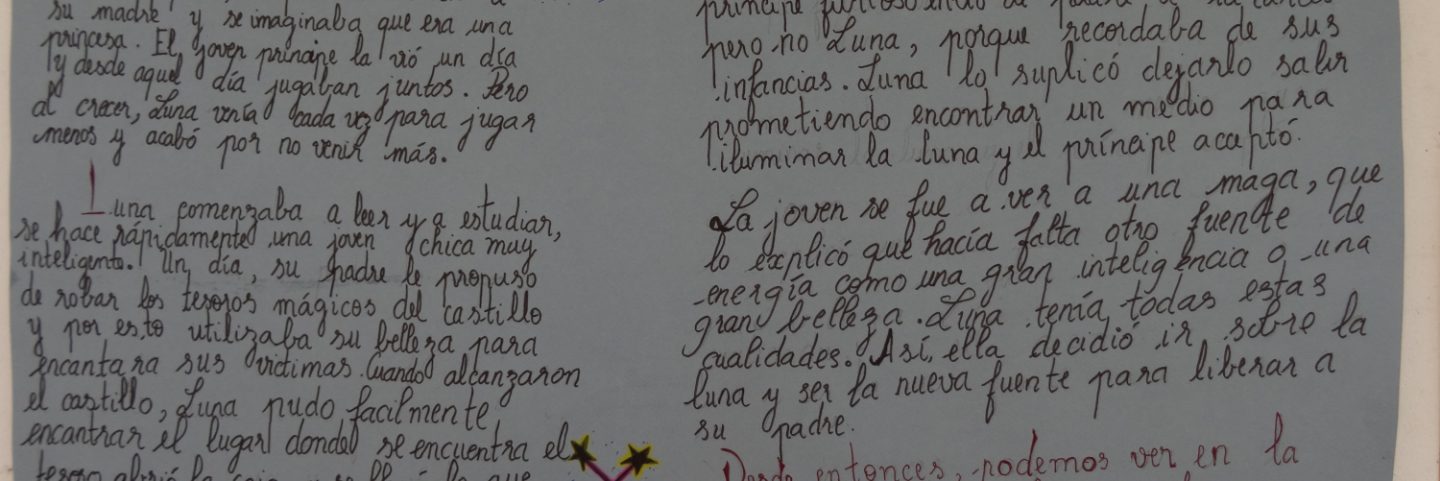 su madre y se imaginaba que era una
princesa. El joven príncipe la vió un día
y desde aquel día jugaban juntos. Pero
al crecer, Luna venía cada vez para jugar
menos y acabó por no venir más.
Luna comenzaba a leer y a estudiar,
se hace rápidamente una joven chica muy
inteligente. Un día, su padre le propuso
de robar los tesoros mágicos del castillo
y por esto utilizaba su belleza para
encantara sus victimas. Cuando alcanzaron
el castillo, Luna pudo facilmente
encantrar el lugar donde se encuentra el
tesoro abrió la caja
príncipe furioso
pero no Luna, porque recordaba de sus
infancias. Luna lo suplicó dejarlo salir
prometiendo encontrar un medio para
iluminar la luna y el príncipe acaptó.
La joven se fue a ver a una maga, que
lo explicó que hacía falta otro fuente de
energía como una gran inteligencia o una
gran belleza. Luna tenía todas estas
cualidades. Así, ella decidió ir sobre la
luna y ser la nueva fuente para liberar a
su padre.
Desde entonces, podemos ver en la